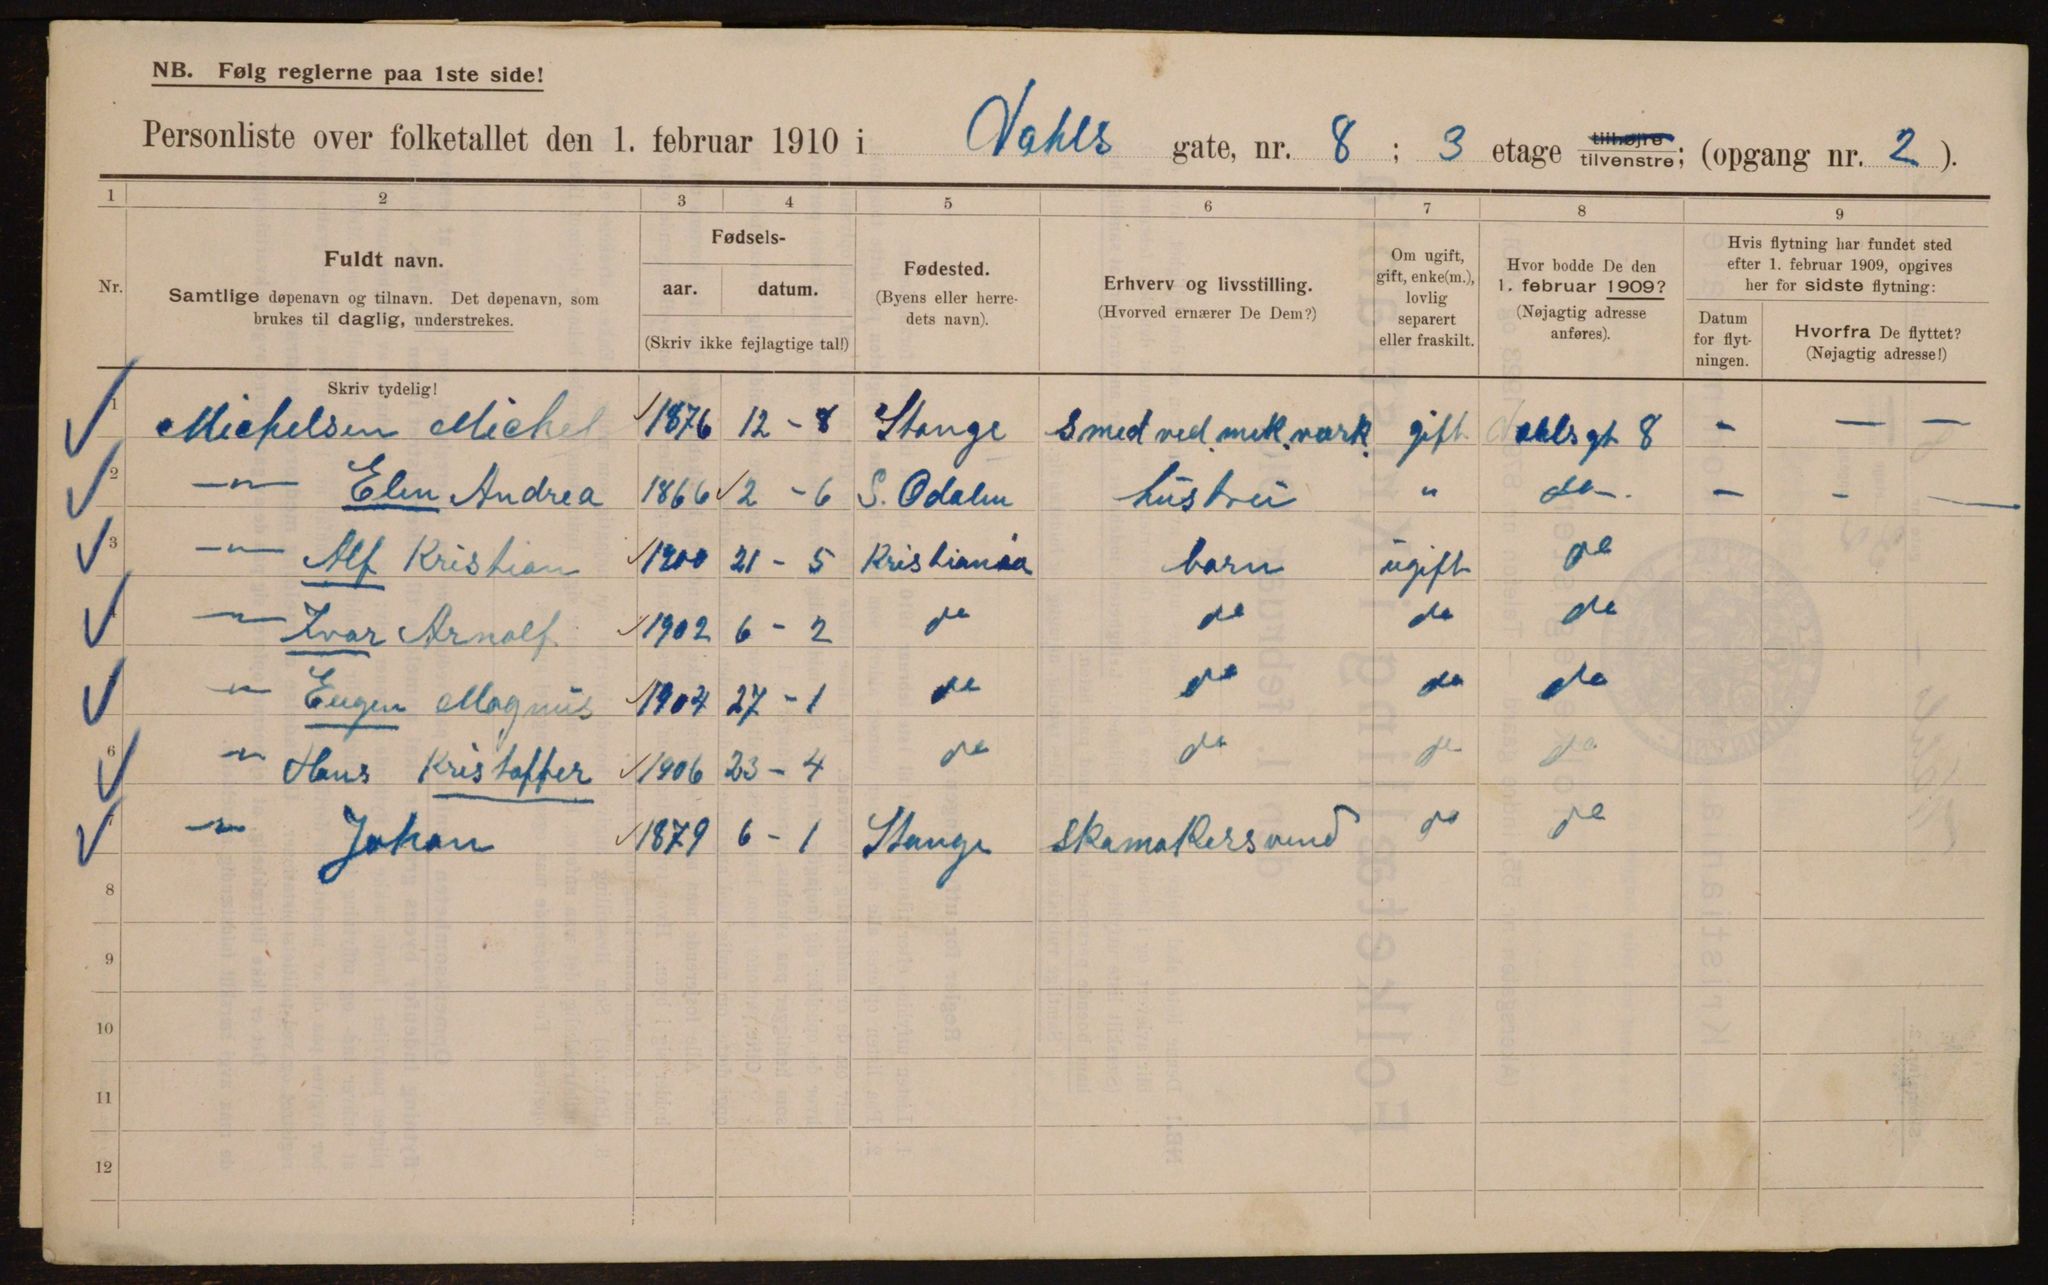 NB. Følg reglerne paa 1ste side!
Personliste over folketallet den 1. februar 1910 i Dahls gate, nr. 8 ; 3 etage tilhøjre tilvenstre; (opgang nr. 2 ).
1 2 3 4 5 6 7 8 9
Nr.
Fuldt navn.
Samtlige døpenavn og tilnavn. Det døpenavn, som
brukes til daglig, understrekes.
Skriv tydelig!
Fødsels-
aar. datum.
(Skriv ikke fejlagtige tal!)
Fødested.
(Byens eller herre-
dets navn).
Erhverv og livsstilling.
(Hvorved ernærer De Dem?)
Om ugift,
gift, enke(m.),
lovlig
separert
eller fraskilt.
Hvor bodde De den
1. februar 1909?
(Nøjagtig adresse
anføres).
Hvis flytning har fundet sted
efter 1. februar 1909, opgives
her for sidste flytning:
Datum
for flyt-
ningen.
Hvorfra De flyttet?
(Nøjagtig adresse!)
1 Michelsen Michel 1876 12 - 8 Stange Smed ved. mek. værk. gift Dahlsgt 8 - — —
2 —"— Elen Andrea 1866 2 - 6 S. Odalen hustru " do - - —
3 —"— Alf Kristian 1900 21 - 5 Kristiania barn ugift do
—"— Ivar Arnolf 1902 6 - 2 do do do do
—"— Eugen Magnus 1904 27 - 1 do do do do
6 —"— Hans Kristoffer 1906 23 - 4 do do do do
—"— Johan 1879 6 - 1 Stange Skomakersvend do do
8
9
10
11
12